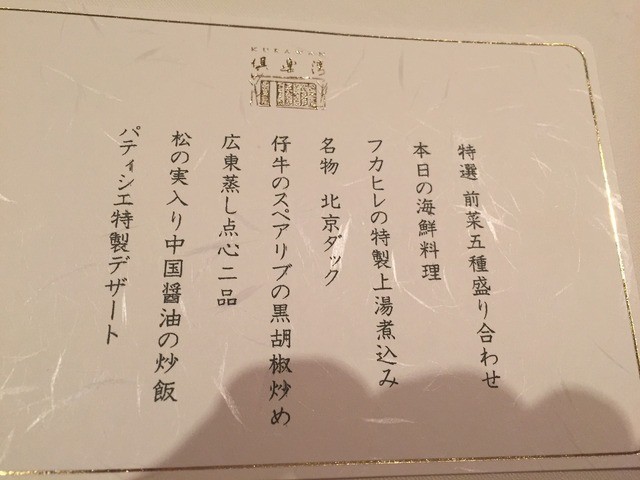 俱楽湾
特選 前菜五種盛り合わせ
本日の海鮮料理
フカヒレの特製上湯煮込み
名物 北京ダック
仔牛のスペアリブの黒胡椒炒め
広東蒸し点心二品
松の実入り中国醤油の炒飯
パティシエ特製デザート